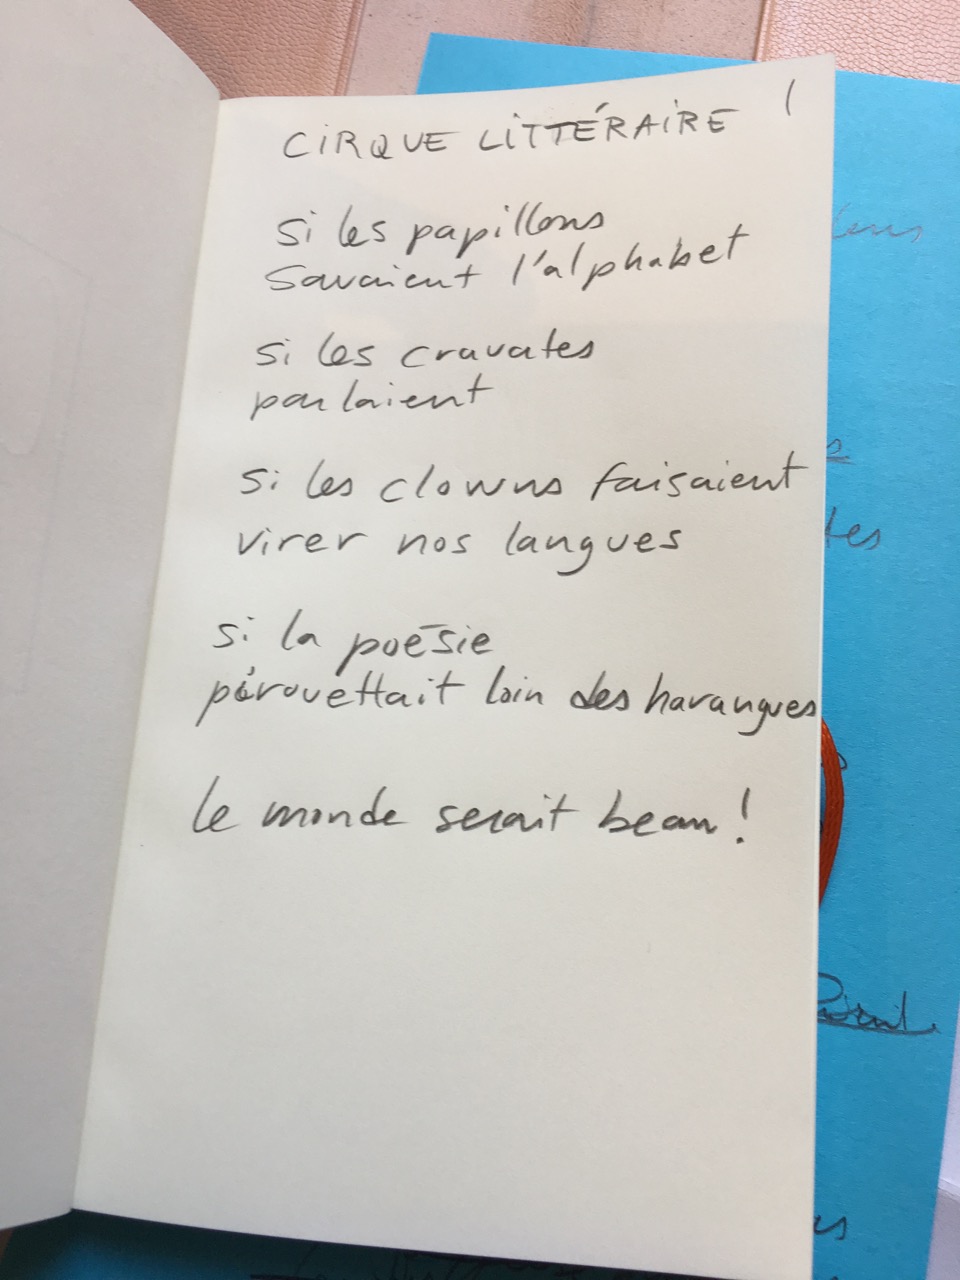 CIRQUE LITTÉRAIRE
si les papillons
savaient l'alphabet
si les cravates
parlaient
si les clowns faisaient
virer nos langues
si la poésie
pirouettait loin des harangues
le monde serait beau !